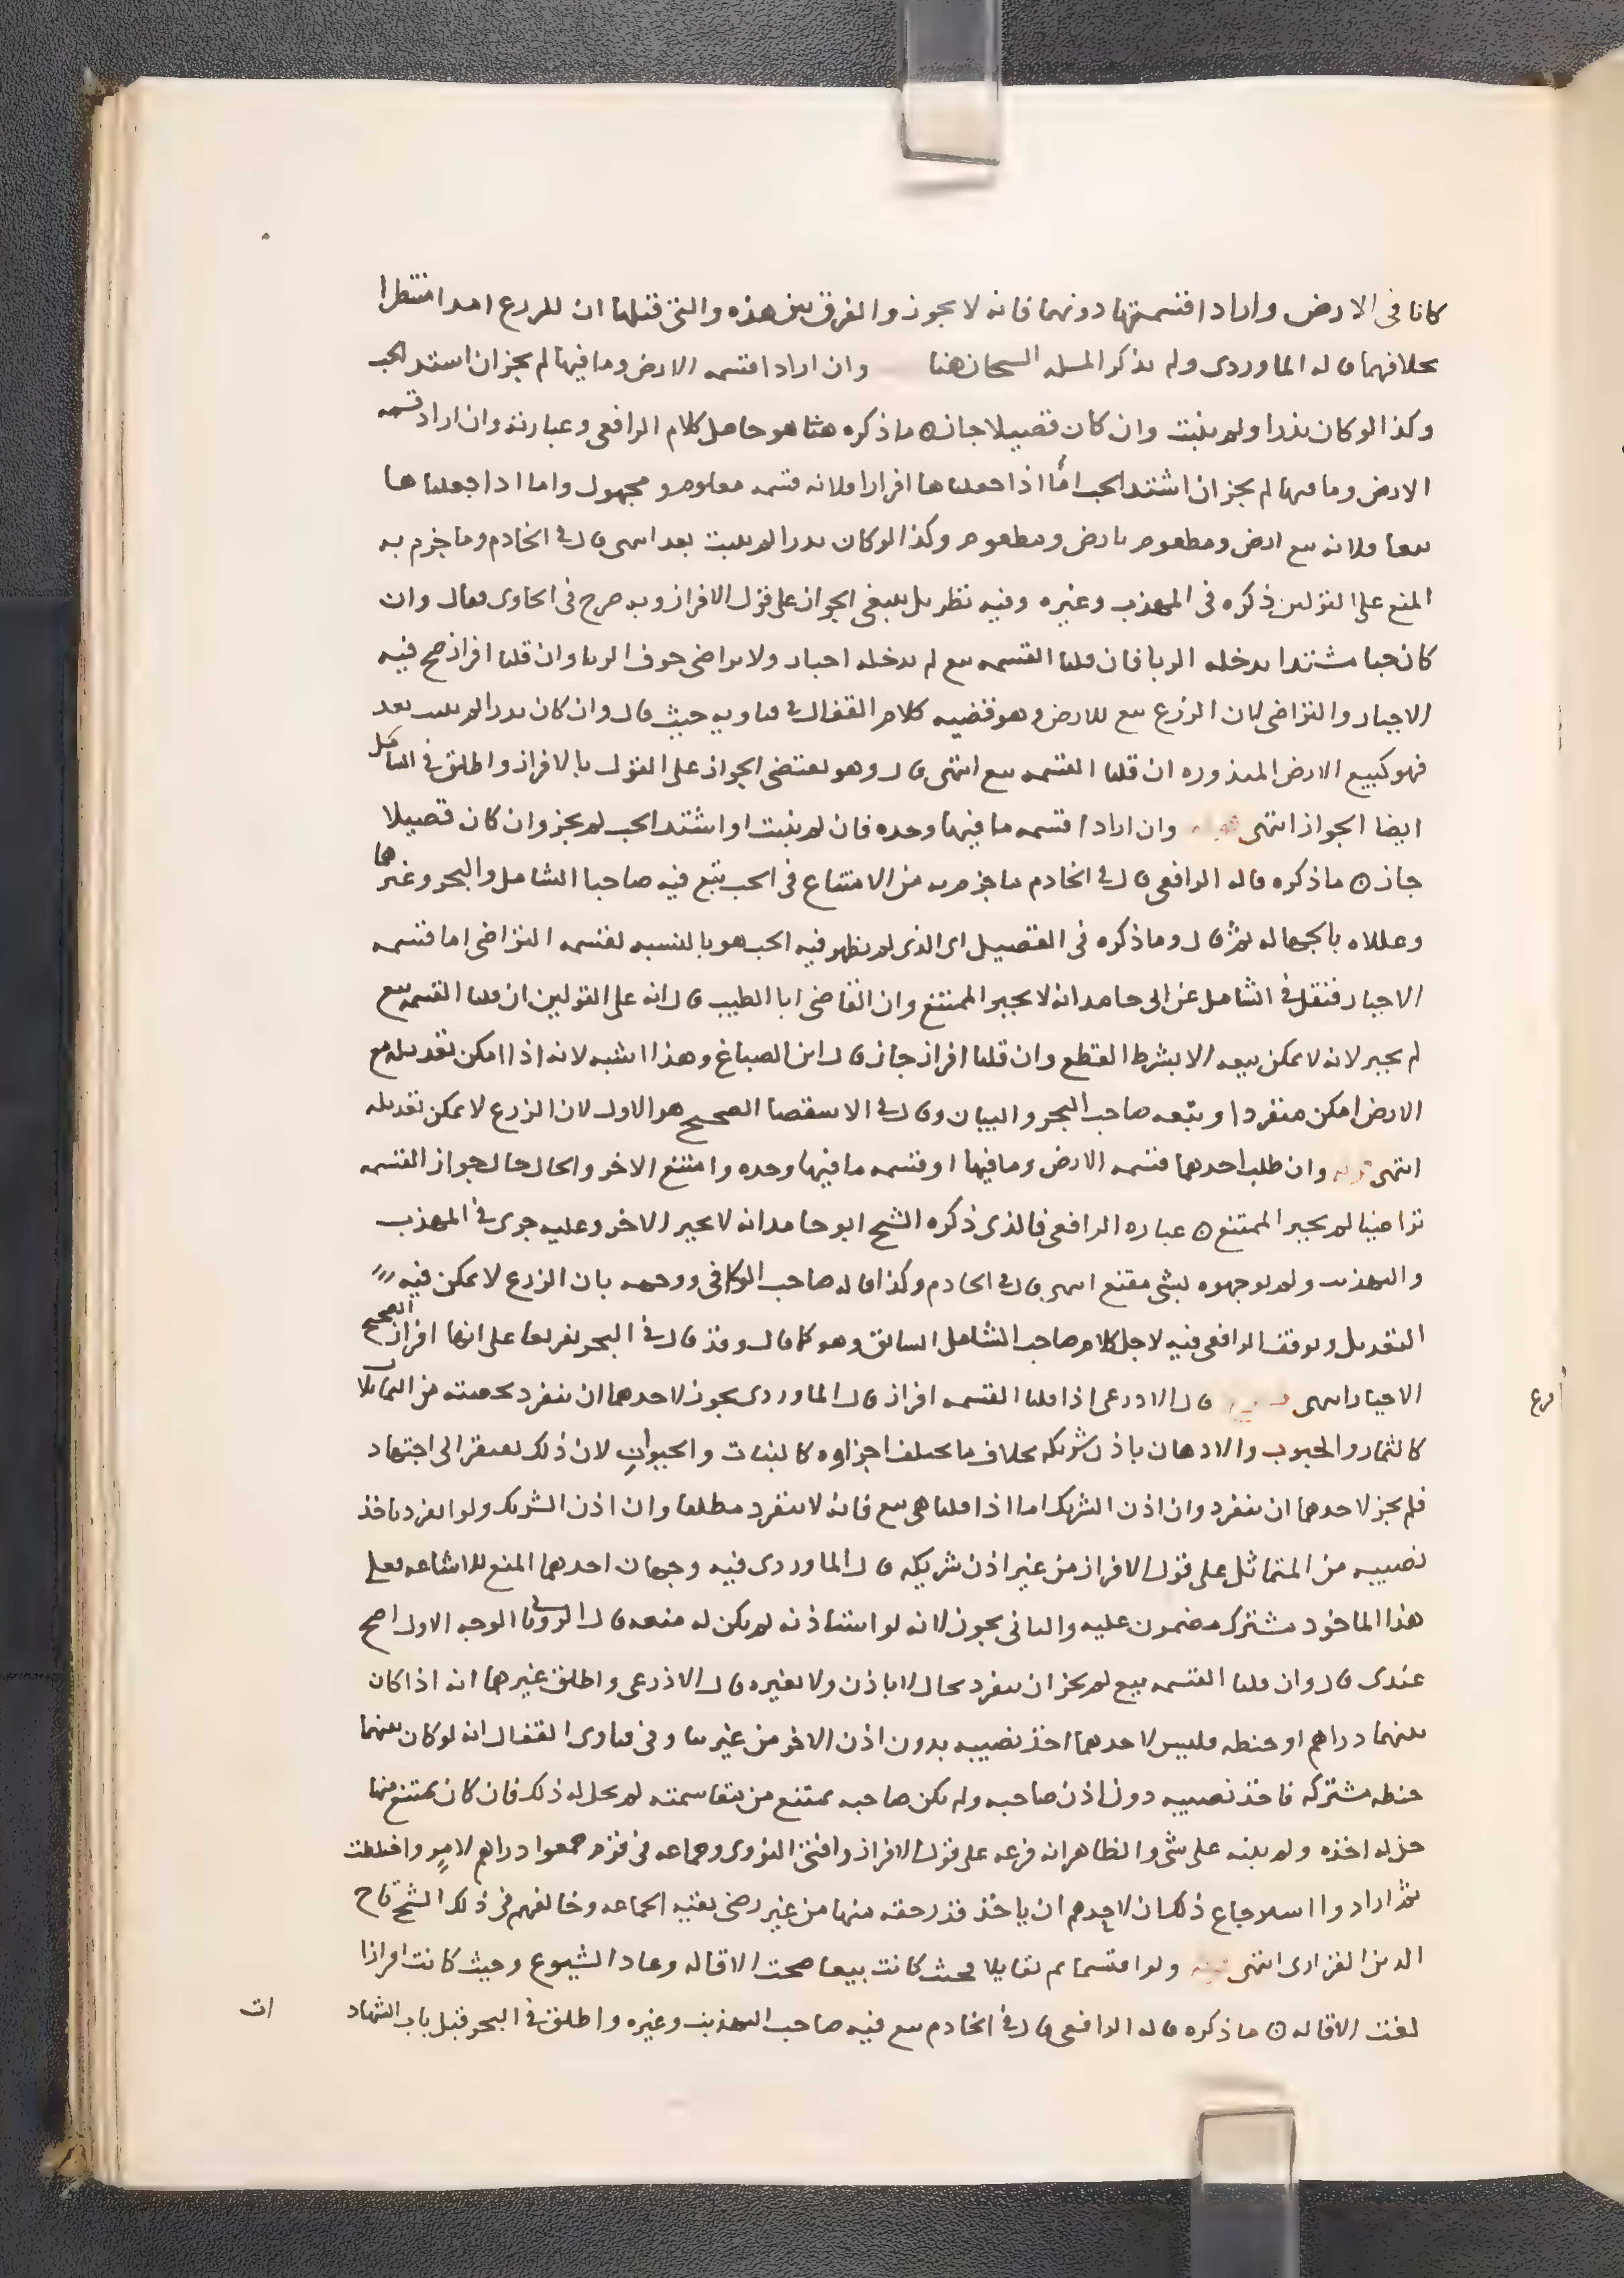 كانا في الارض وارادا قسمتها دونهما فانه لا يجوز والفرق بين هذه والتي قبلها ان للزرع امدا منتظرا
بخلافهما قاله الماوردي ولم يذكر المسله الشيخان هنا وان ارادا قسمه الارض وما فيها لم يجز ان اشتد الحب
وكذا لو كان بذرا ولم ينبت وان كان قصيلا جاز ۞ ما ذكره هنا هو حاصل كلام الرافعي وعبارته وان اراد قسمه
الارض وما فيها لم يجز ان اشتد الحب امّا اذا جعلناها افرازا فلانه قسمه معلوم ومجهول واما اذا جعلناها
بيعا فلانه بيع ارض ومطعوم بارض ومطعوم وكذا لو كان بذرا لم ينبت بعد انتهى قال في الخادم وما جزم به
المنع على القولين ذكره في المهذب وغيره وفيه نظر بل ينبغي الجواز على قول الافراز وبه صرح في الحاوي فقال وان
كان حبا مشتدا يدخله الربا فان قلنا القسمه بيع لم يدخله اجبار ولا تراضي خوف الربا وان قلنا افراز صح فيه
الاجبار والتراضي لان الزرع بيع للارض وهو قضيه كلام القفال في فتاويه حيث قال وان كان بذرا لم ينبت بعد
فهو كبيع الارض المبذوره ان قلنا القسمه بيع انتهى قال وهو يقتضي الجواز على القول بالافراز واطلق في الشامل
ايضا الجواز انتهى قوله وان ارادا قسمه ما فيها وحده فان لم ينبت او اشتد الحب لم يجز وان كان قصيلا
جاز ۞ ما ذكره قاله الرافعي قال في الخادم ما جزم به من الامتناع في الحب تبع فيه صاحبا الشامل والبحر وغيرهما
وعللاه بالجهاله ثم قال وما ذكره في القصيل اي الذي لم يظهر فيه الحب هو بالنسبه لقسمه التراضي اما قسمه
الاجبار فنقل في الشامل عن ابي حامد انه لا يجبر الممتنع وان القاضي ابا الطيب قال انه على القولين ان قلنا القسمه بيع
لم يجبر لانه لا يمكن بيعه الا بشرط القطع وان قلنا افراز جاز قال ابن الصباغ وهذا اشبه لانه اذا امكن تعديله مع
الارض امكن منفردا وتبعه صاحب البحر والبيان وقال في الاستقصا الصحيح هو الاول لان الزرع لا يمكن تعديله
انتهى قوله وان طلب احدهما قسمه الارض وما فيها او قسمه ما فيها وحده وامتنع الاخر والحال حال جواز القسمه
تراضيا لم يجبر الممتنع ۞ عباره الرافعي فالذي ذكره الشيخ ابو حامد انه لا يجبر الاخر وعليه جرى في المهذب
والتهذيب ولم يوجهوه بشي مقنع انتهى قال في الخادم وكذا قاله صاحب الكافي ووجهه بان الزرع لا يمكن فيه
التعديل وتوقف الرافعي فيه لاجل كلام صاحب الشامل السابق وهو كما قال وقد قال في البحر تفريعا على انها افراز الصحيح
الاجبار انتهى قال الاذرعي اذا قلنا القسمه افراز قال الماوردي يجوز لاحدهما ان ينفرد بحصته من المتماثلات
كالثمار والحبوب والادهان باذن شريكه بخلاف ما يختلف اجزاوه كالنبات والحيوان لان ذلك يفتقر الى اجتهاد
فلم يجز لاحدهما ان ينفرد وان اذن الشريك اما اذا قلنا هي بيع فانه لا ينفرد مطلقا وان اذن الشريك ولو انفرد باخذ
نصيبه من المتماثل على قول الافراز من غير اذن شريكه قال الماوردي فيه وجهان احدهما المنع للاشاعه فعلى
هذا الماخوذ مشترك مضمون عليه والثاني يجوز لانه لو استاذنه لم يكن له منعه قال الروياني الوجه الاول اصح
عندي قال وان قلنا القسمه بيع لم يجز ان ينفرد بحال لا باذن ولا بغيره قال الاذرعي واطلق غيرهما انه اذا كان
بينهما دراهم او حنطه فليس لاحدهما اخذ نصيبه بدون اذن الاخر من غير بنا وفي فتاوى القفال انه لو كان بينهما
حنطه مشتركه فاخذ نصيبه دون اذن صاحبه ولم يكن صاحبه يمتنع من مقاسمته لم يحل له ذلك فان كان يمتنع منها
حل له اخذه ولم يبنه على شي والظاهر انه فرعه على قول الافراز وافتى النووي وجماعه في قوم جمعوا دراهم لامر واختلطت
ثم ارادوا استرجاع ذلك ان لاحدهم ان ياخذ قدر حقه منها من غير رضى بقيه الجماعه وخالفهم في ذلك الشيخ تاج
الدين الفزاري انتهى ولو اقتسما ثم تقايلا فحيث كانت بيعا صحت الاقاله وعاد الشيوع وحيث كانت افرازا
لغت الاقاله ۞ ما ذكره قاله الرافعي قال في الخادم تبع فيه صاحب التهذيب وغيره واطلق في البحر قبل باب الشهاد
ات
فرع